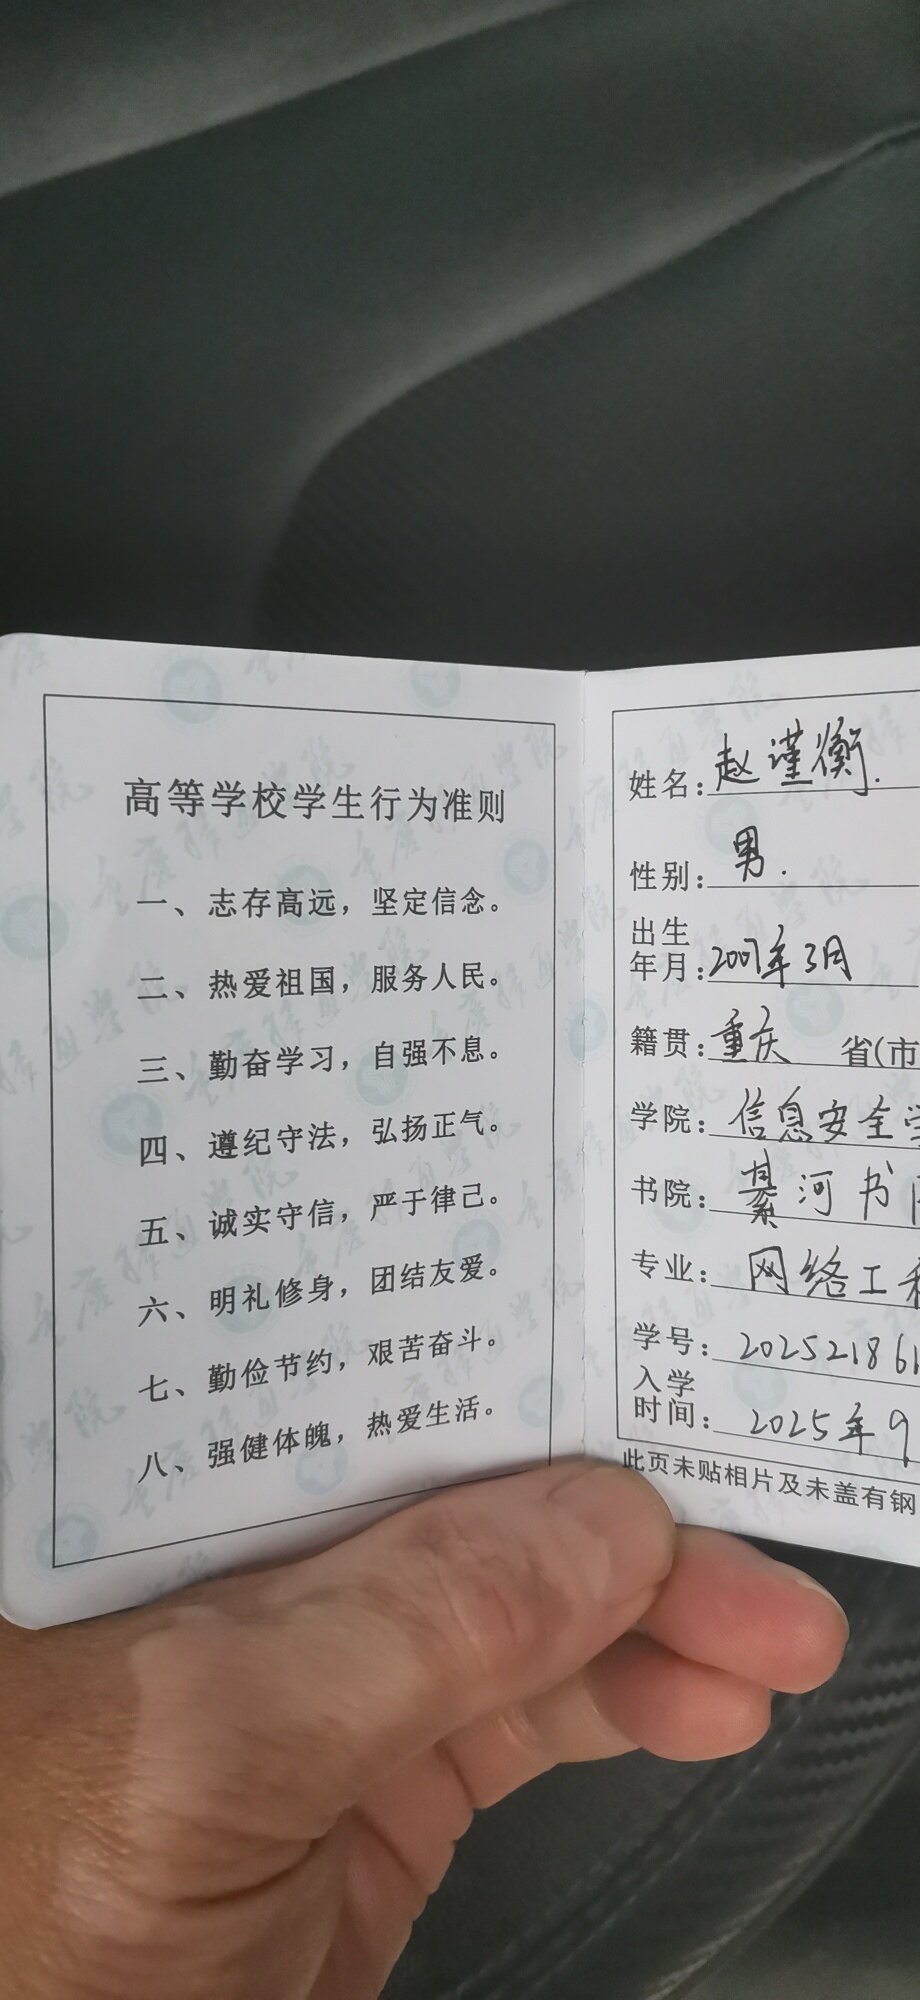 高等学校学生行为准则
一、志存高远，坚定信念。
二、热爱祖国，服务人民。
三、勤奋学习，自强不息。
四、遵纪守法，弘扬正气。
五、诚实守信，严于律己。
六、明礼修身，团结友爱。
七、勤俭节约，艰苦奋斗。
八、强健体魄，热爱生活。
姓名：赵谨衡.
性别：男.
出生
年月：2007年3月
籍贯：重庆 省(市
学院：信息安全学
书院：綦河书
专业：网络工程
学号：202521861
入学
时间：2025年9
此页未贴相片及未盖有钢